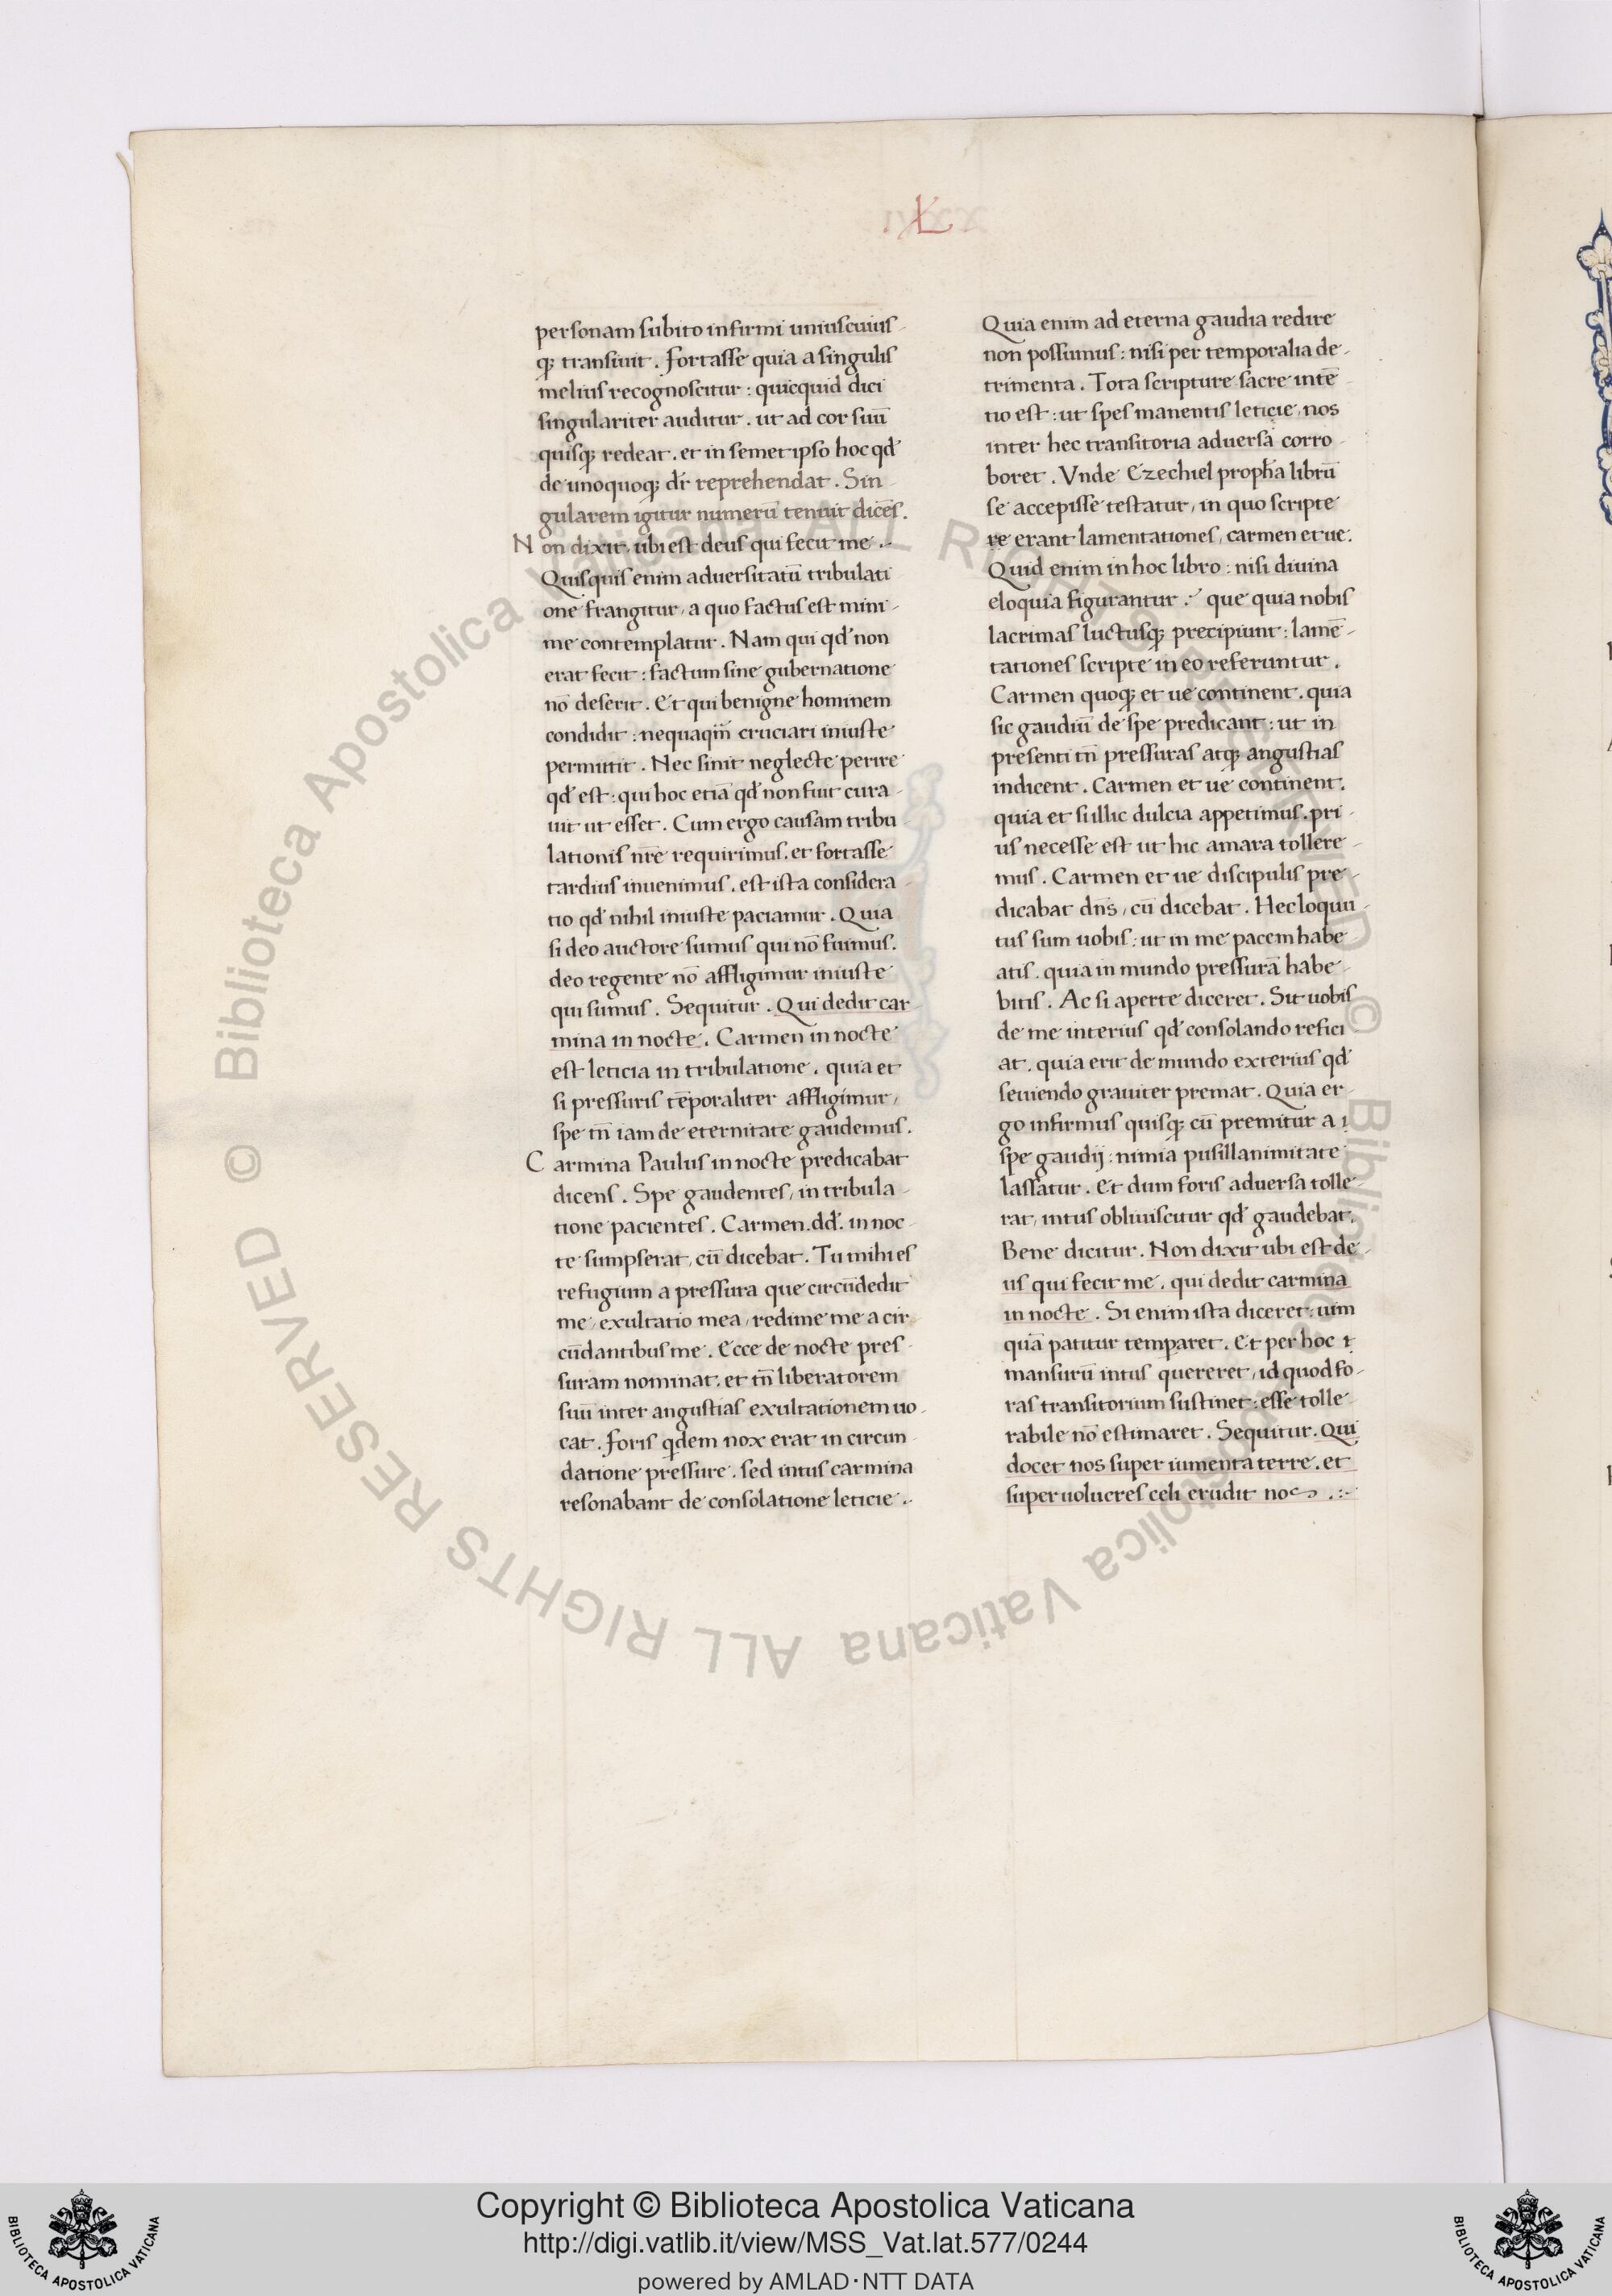 L
personam subito infirmi uniuscuius-
q; transiuit. fortasse quia a singulis
melius recognoscitur: quicquid dici
singulariter auditur. ut ad cor suū
quisq; redeat. et in semet ipso hoc qđ
de unoquoq; dr̄ reprehendat. Sin-
gularem igitur numerū tenuit dicēs.
Non dixit, ubi est deus qui fecit me.-
Quisquis enim aduersitatū tribulati
one frangitur, a quo factus est mini-
me contemplatur. Nam qui qđ non
erat fecit: factum sine gubernatione
nō deserit. Et qui benigne hominem
condidit: nequaq̄m̄ cruciari iniuste
permittit. Nec sinit neglecte perire
qđ est: qui hoc etiā qđ non fuit cura-
uit ut esset. Cum ergo causam tribu-
lationis nr̄e requirimus. et fortasse
tardius inuenimus. est ista considera-
tio qđ nihil iniuste paciamur. Quia
si deo auctore sumus qui nō fuimus.
deo regente nō affligimur iniuste
qui sumus. Sequitur. Qui dedit car-
mina in nocte. Carmen in nocte
est leticia in tribulatione. quia et
si pressuris tēporaliter affligimur,
spe tn̄ iam de eternitate gaudemus.
Carmina Paulus in nocte predicabat
dicens. Spe gaudentes, in tribula-
tione pacientes. Carmen .dd̄. in noc-
te sumpserat, cū dicebat. Tu mihi es
refugium a pressura que circūdedit
me, exultatio mea, redime me a cir-
cūdantibus me. Ecce de nocte pres-
suram nominat. et tn̄ liberatorem
suū inter angustias exultationem uo-
cat. foris qdem nox erat in circun-
datione pressure. sed intus carmina
resonabant de consolatione leticie.
Quia enim ad eterna gaudia redire
non possumus: nisi per temporalia de-
trimenta. Tota scripture sacre intē-
tio est: ut spes manentis leticie, nos
inter hec transitoria aduersa corro-
boret. Vnde Ezechiel proph̄a librū
se accepisse testatur, in quo scripte
re erant lamentationes, carmen et ue.
Quid enim in hoc libro: nisi diuina
eloquia figurantur? que quia nobis
lacrimas luctusq; precipiunt: lamē-
tationes scripte in eo referuntur.
Carmen quoq; et ue continent. quia
sic gaudiū de spe predicant: ut in
presenti tn̄ pressuras atq; angustias
indicent. Carmen et ue continent.
quia et si illic dulcia appetimus. pri-
us necesse est ut hic amara tollere-
mus. Carmen et ue discipulis pre-
dicabat dn̄s, cū dicebat. Hec loquu-
tus sum uobis: ut in me pacem habe-
atis. quia in mundo pressurā habe-
bitis. Ac si aperte diceret. Sit uobis
de me interius qđ consolando refici
at. quia erit de mundo exterius qđ
seuiendo grauiter premat. Quia er-
go infirmus quisq; cū premitur a
spe gaudij: nimia pusillanimitate
lassatur. Et dum foris aduersa tolle-
rat, intus obliuiscitur qđ gaudebat.
Bene dicitur. Non dixit ubi est de-
us qui fecit me. qui dedit carmina
in nocte. Si enim ista diceret: uim
quā patitur temparet. Et per hoc
mansurū intus quereret, id quod fo-
ras transitorium sustinet: esse tolle-
rabile nō estimaret. Sequitur. Qui
docet nos super iumenta terre. et
super uolucres celi erudit nos .:-
© Biblioteca Apostolica Vaticana ALL RIGHTS RESERVED © Biblioteca Apostolica Vaticana ALL RIGHTS RESERVED
BIBLIOTECA APOSTOLICA VATICANA
Copyright © Biblioteca Apostolica Vaticana
http://digi.vatlib.it/view/MSS_Vat.lat.577/0244
powered by AMLAD·NTT DATA
BIBLIOTECA APOSTOLICA VATICANA